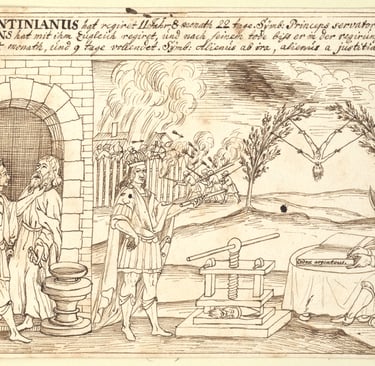 NTINIANUS hat regiret 11 Jahr 8 monath 22 tage. Sÿmb: Princeps servator
NS hat mit ihm Zugleich regiret, und nach seinem tode biss er in der regirung
monath, und 9 tage vollendet. Sÿmb: Alienus ab ira, alienus a justitia
Codex argenteus.